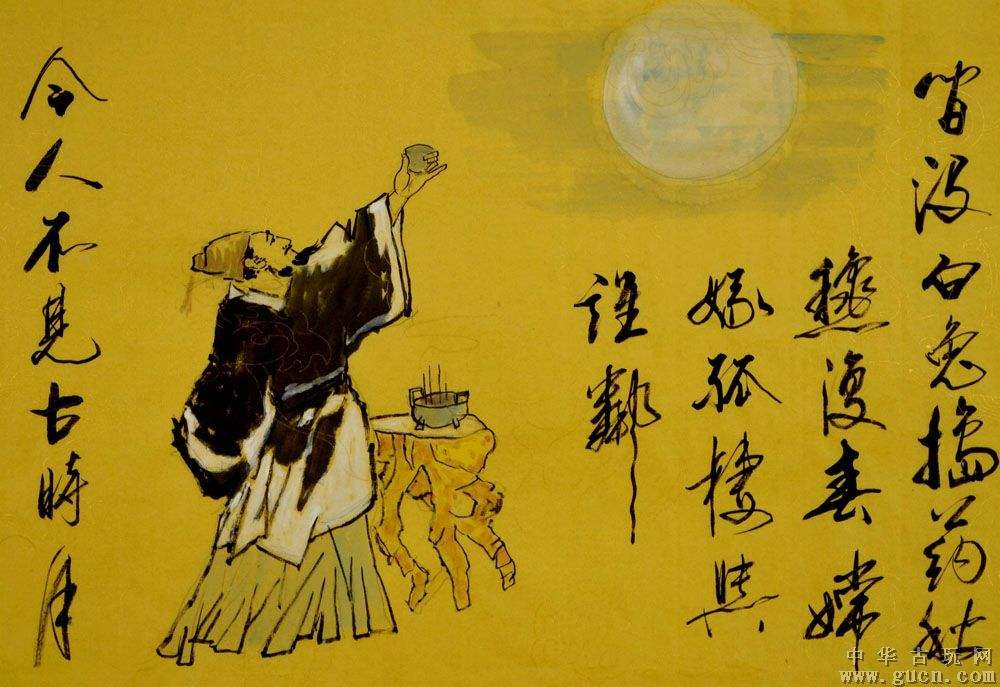 间没白兔搗药秋
復春嫦
娥孤棲與
誰鄰
今人不見古時月
中华古玩网
www.gucn.com